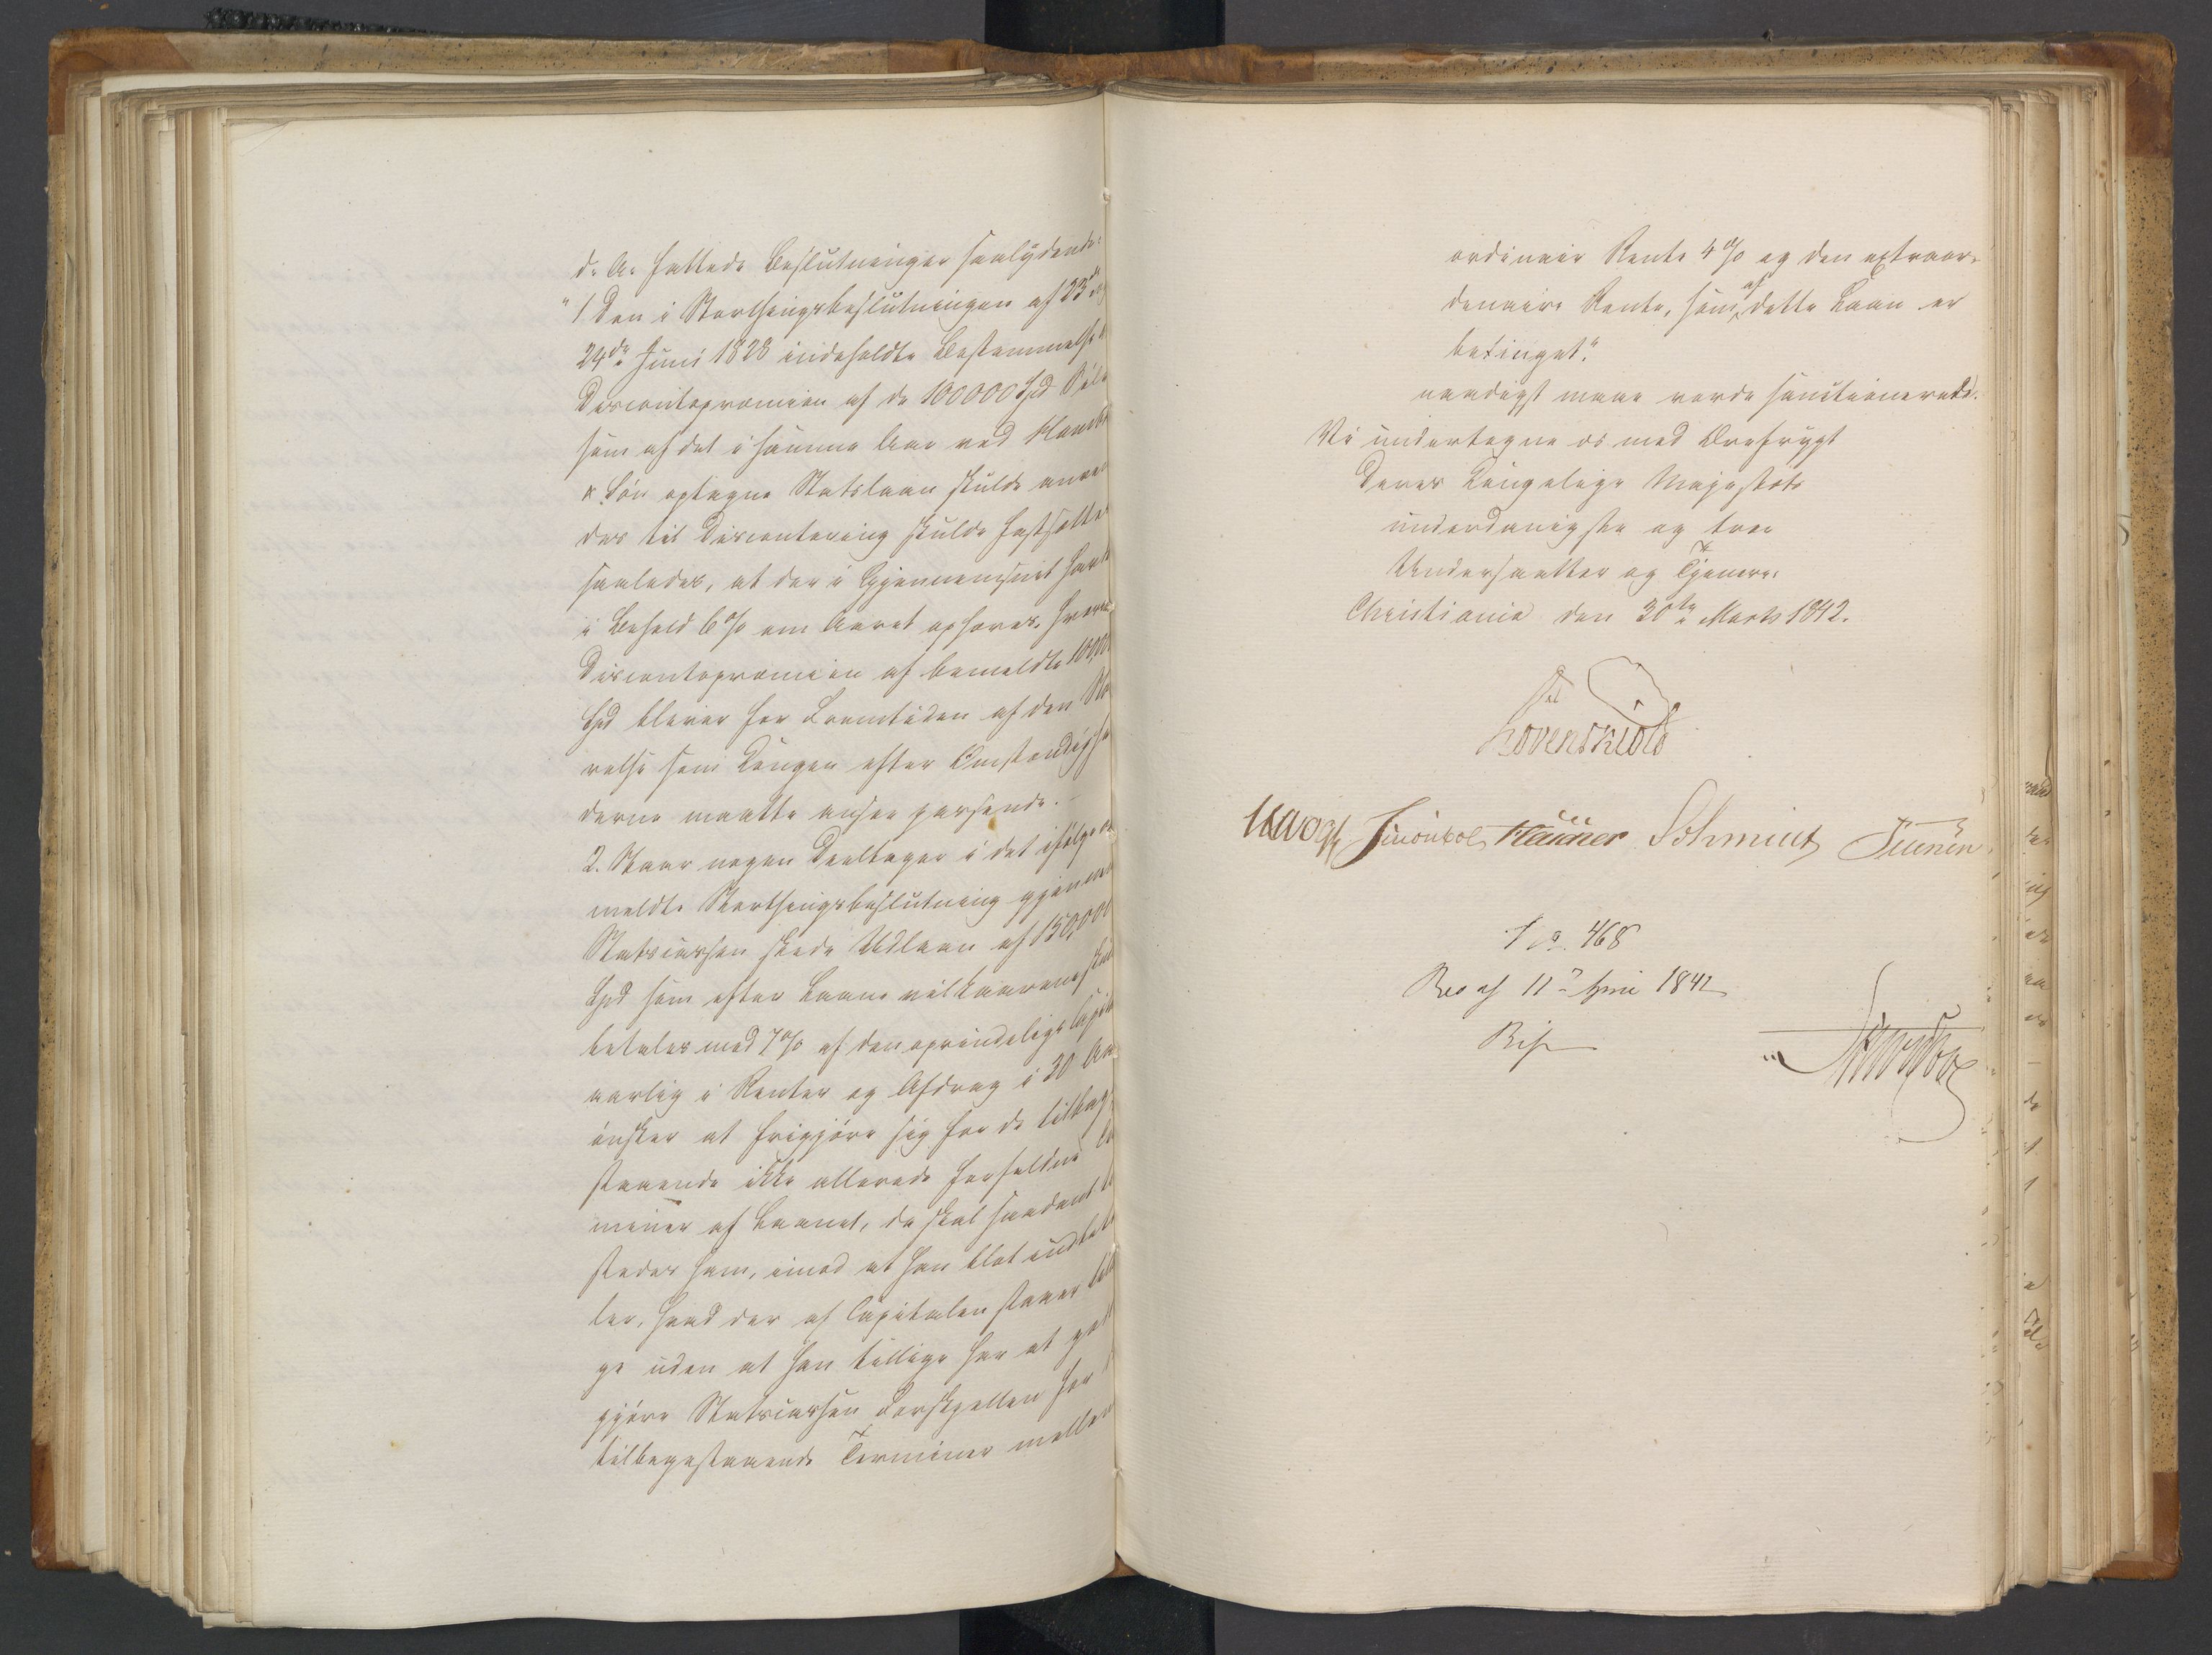 d. A. fattede Beslutninger saalydende:
"1 Den i Storthingsbeslutningen af 23de og
24de Juni 1828 indeholdte Bestemmelse
Discontopræmien af de 100000 Spd Sølv
som af det i samme Aar ved Hambro
& Søn optagne Statslaan skulde anven
des til Discontering skulde fastsættes
saaledes, at der i Gjennemsnit havde
i Behold 6% om Aaret ophæves. Hvorimod
Discontopræmien af bemeldte 100,000
Spd bliver for Fremtiden af den Stør
relse som Kongen efter Omstændighe
derne maatte ansee passende.-
2. Naar nogen Deeltager i det ifølge be
meldte Storthingsbeslutning gjennem
Statscassen skede Udlaan af 150,000
Spd som efter Laane vilkaarene skal
betales med 7% af den oprindelige Capital
aarlig i Renter og Afdrag i 20 Aar
ønsker at frigjøre sig for de tilbage
staaende ikke allerede forfaldne Ter
miner af Laanet, da skal saadant til
stedes ham, imod at han blot indbeta
ler, hvad der af Capitalen staaer tilba
ge uden at han tillige har at godt
gjøre Statscassen Forskjellen for
tilbagestaaende Terminer mellem
ordinair Rente 4% og den extraor-
denaire Rente, som af dette Laan er
betinget."
naadigst maae vorde sanctionerede.
Vi undertegne os med Ærefrygt
Deres Kongelige Majestæts
underdanigste og troe
Undersaatter og Tjenere.
Christiania den 30te Marts 1842.
Løvenskiold
Vogt Schmidt
No. 468
Res af 11 Juni 1842